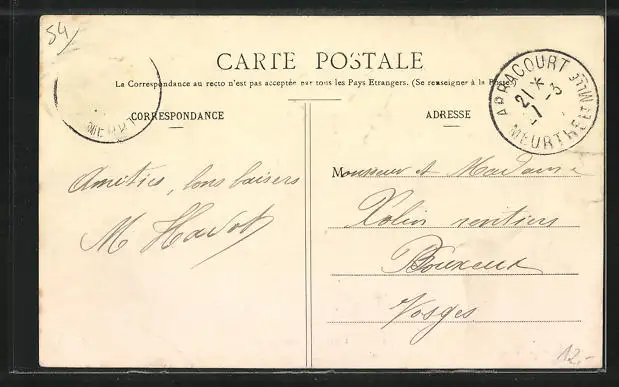 54
CARTE POSTALE
La Correspondance au recto n'est pas acceptée par tous les Pays Etrangers. (Se renseigner à la Poste)
ARRACOURT
21 * -3
MEURTHE ET MLLE
MEURT
CORRESPONDANCE
ADRESSE
Amitiés, bons baisers
M
Monsieur et Madame
rentiers
Bouxeux
Vosges
12.-